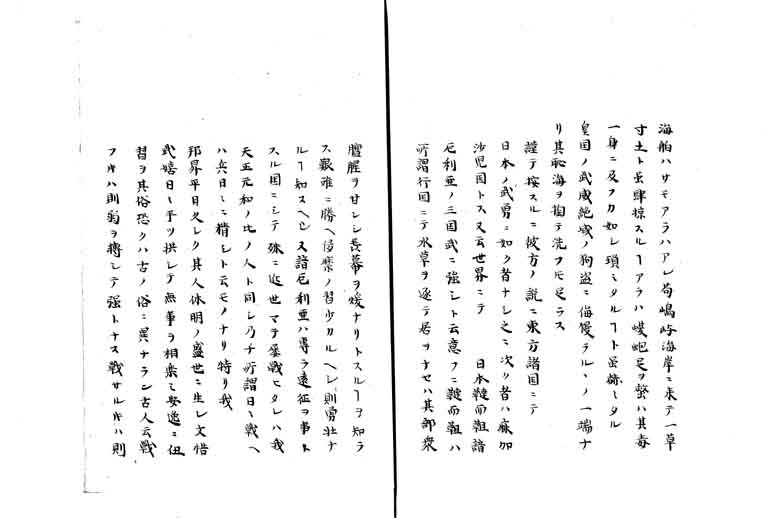 海舶ハサモアラハアレ苟嶋嶼海岸ニ来テ一草
寸土ト虽肆掠スルヿアラハ蝮虵足ヲ螫ハ其毒
一身ニ及フカ如レ瑣ミタルヿト虽赫ミタル
皇国ノ武威絶域ノ狗盗ニ侮慢ラルヽノ一端ナ
リ其恥海ヲ掬テ洗フモ足ラス
謹テ按スルニ彼方ノ説ニ東方諸国ニテ
日本ノ武勇ニ如ク者ナシ之ニ次ク者ハ
沙児国トス又云世界ニテ 日本韃而靼諳
厄利亜ノ三国武ニ強シト云意フニ韃而靼ハ
所謂行国ニテ水草ヲ逐テ居ヲナセハ其部衆
羶腥ヲ甘シレ長幕ヲ煖ナリトスルヿヲ知ラ
ス艱难ニ勝ヘ侈靡ノ習少カルヘレ則勇壮ナ
ルヿ知スヘシ又諳厄利亜ハ専ラ遠征ヲ事ト
スル国ニシテ殊ニ近世マテ屡戦ヒタレハ我
天正元和ノ比ノ人ト同シ乃チ所謂日ヽ戦ヘ
ハ兵日ニ精シト云モノナリ特リ我
邦昇平日久レク其人休明ノ盛世ニ生レ文恬
武嬉日ニ手ツ拱レテ無事ヲ相楽ミ安逸ニ狃
習ヲ其俗恐クハ古ノ俗ニ異ナラン古人云戦
フ片ハ則弱ヲ転シテ強トナス戦サル片ハ則